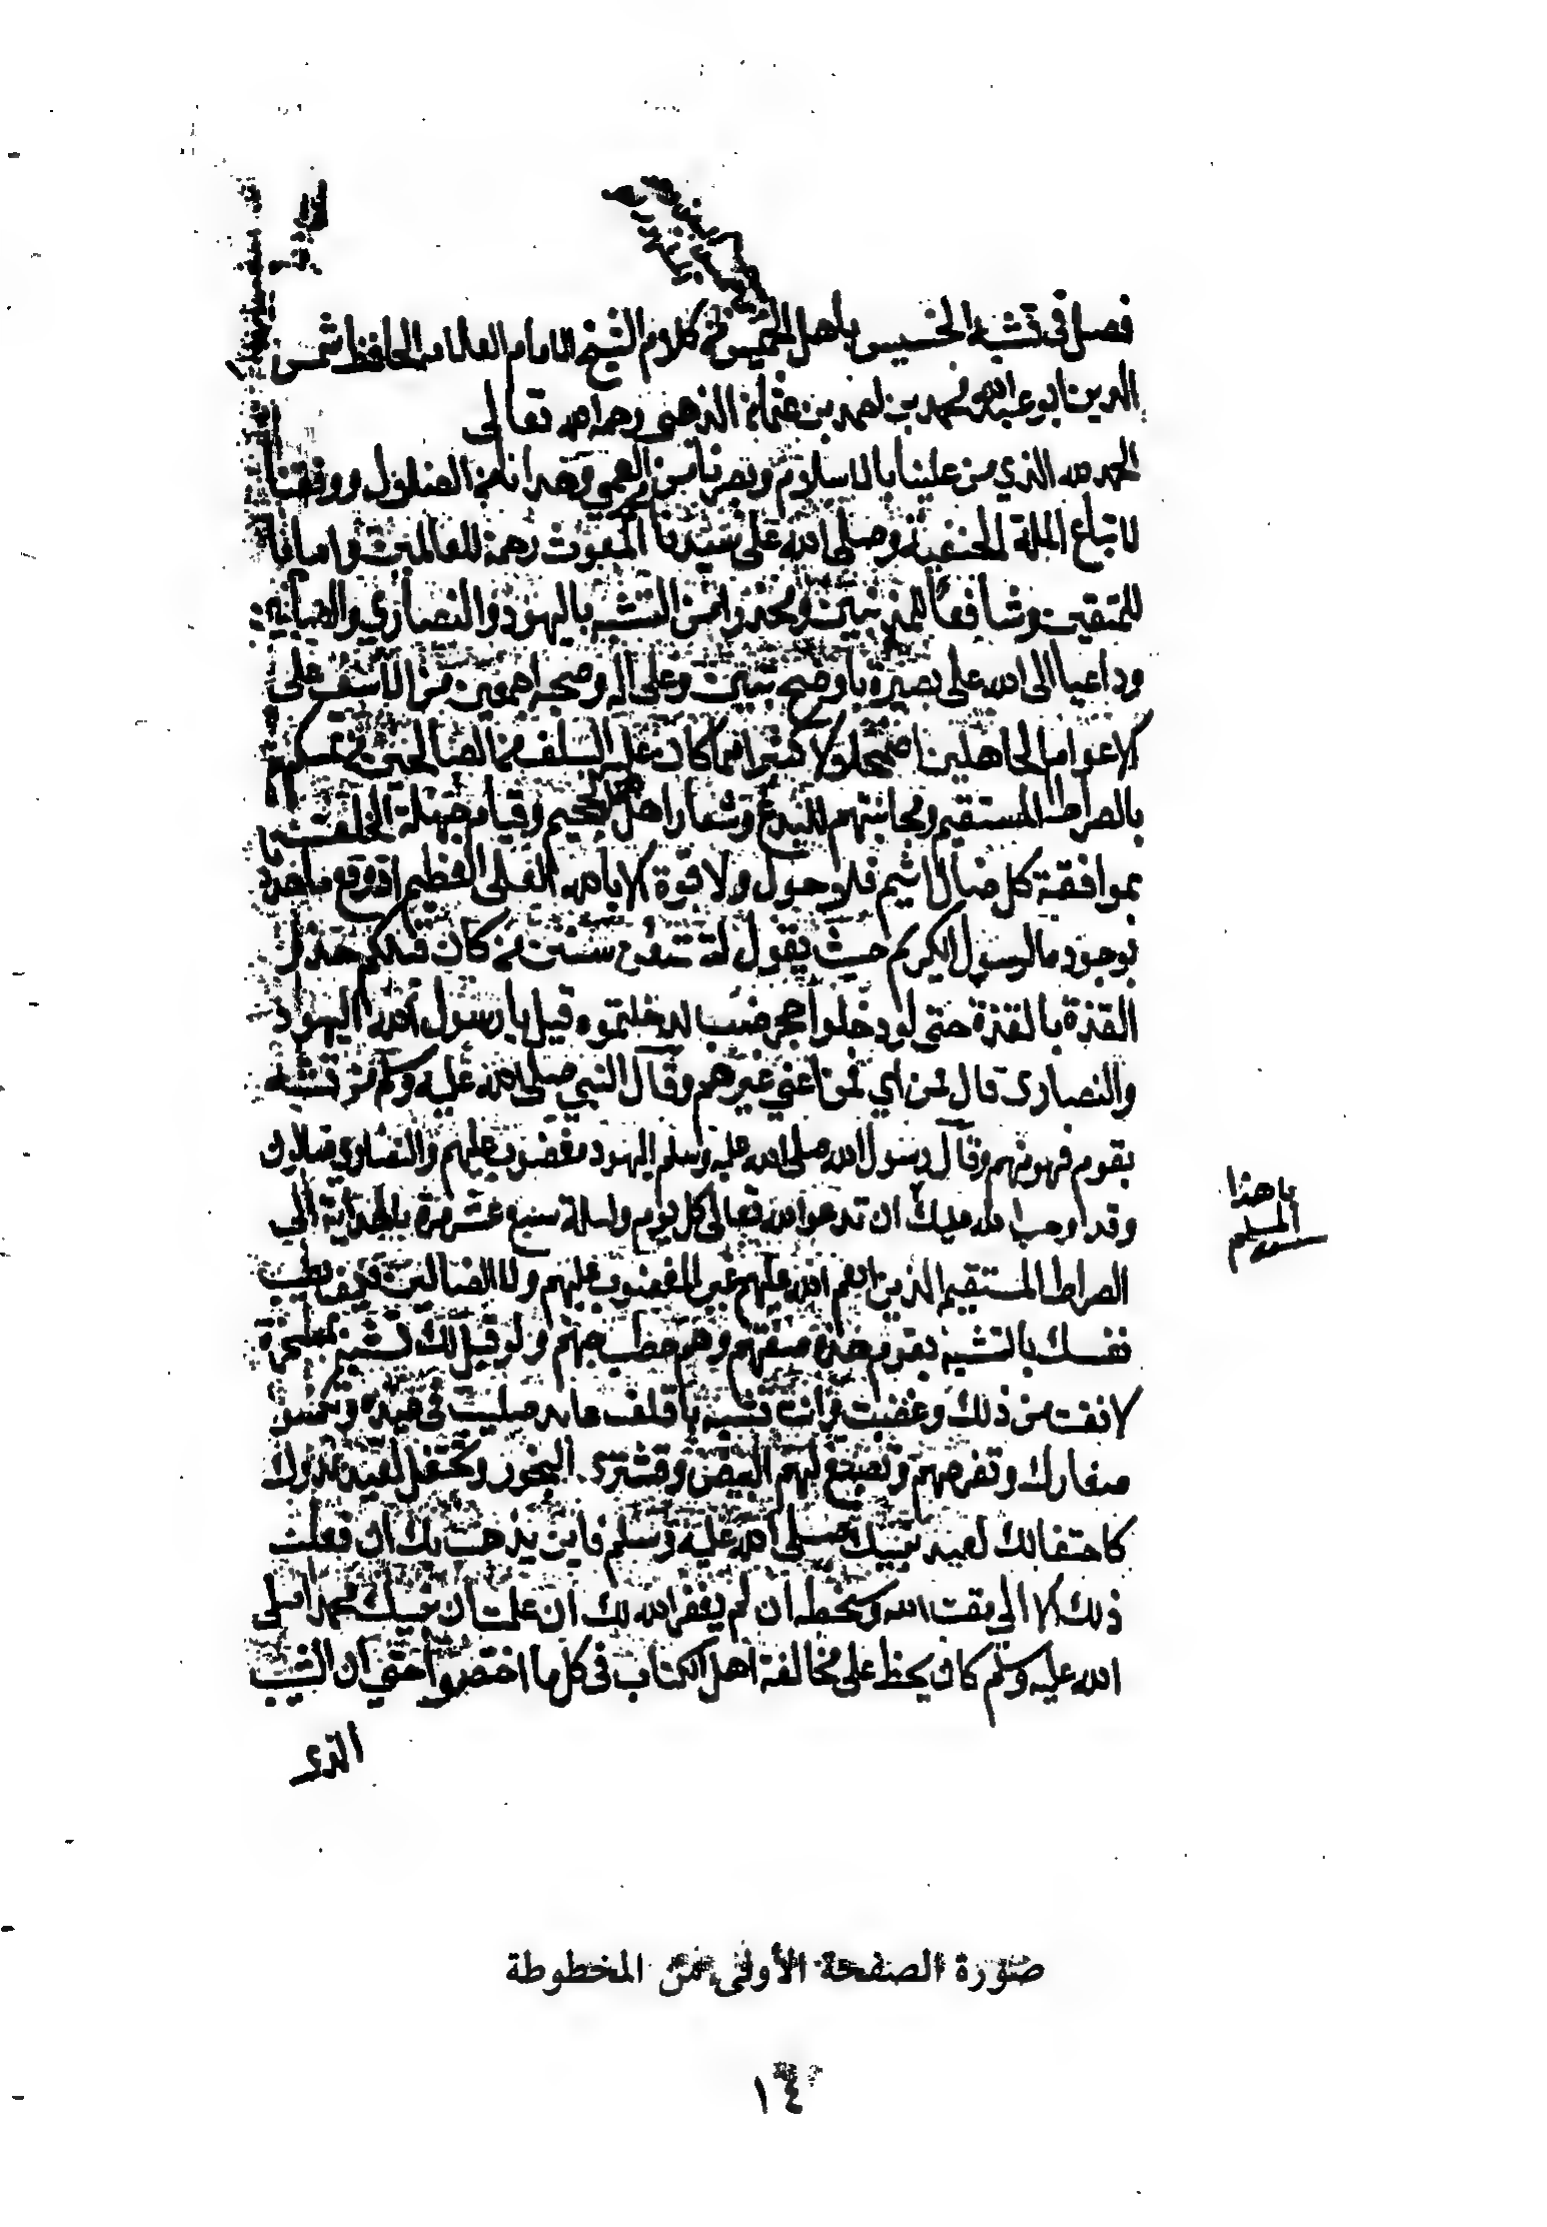 فصل في تشبه الخسيس باهل الخميس من كلام الشيخ الامام العلامه الحافظ شمس
الدين ابو عبدالله محمد بن احمد بن عثمان الذهبي رحمه الله تعالى
الحمد لله الذي من علينا بالاسلام وبصرنا من العمى وهدانا من الضلال ووفقنا
لاتباع الملة الحنيفية وصلى الله على سيدنا المبعوث رحمة للعالمين واماما
للمتقين وشافعا للمذنبين ومحذرا من التشبه باليهود والنصارى والصابئه
وداعيا الى الله على بصيرة باوضح تبيين وعلى اله وصحبه اجمعين من الاسف على
الاعوام الجاهلين اضمحلو لاكثر مما كان عليه السلف من الصالحين من تمسكهم
بالصراط المستقيم ومجانبتهم للبدع وشعار اهل الجحيم وقيام جهلة الخلف
بموافقة كل ضال اثيم فلا حول ولا قوة الا بالله العلي العظيم اذ وقع ما حذر
بوجوده الرسول الكريم حيث يقول لتتبعن سنن من كان قبلكم حذو
القذة بالقذة حتى لو دخلوا جحر ضب لدخلتموه قيل يا رسول الله اليهود
والنصارى قال فمن اي فمن اعني غيرهم وقال النبي صلى الله عليه وسلم من تشبه
بقوم فهو منهم وقال رسول الله صلى الله عليه وسلم اليهود مغضوب عليهم والنصارى ضلال
وقد اوجب الله عليك ان تدعو الله تعالى كل يوم وليلة سبع عشر مرة بالهداية الى
الصراط المستقيم الذين انعم الله عليهم غير المغضوب عليهم ولا الضالين فكيف تطيب
نفسك بالتشبه بقوم هذه صفتهم وهم حطب جهنم ولو قيل لك تشبه بمسخرة
لانفت من ذلك وغضبت وانت تشبه باقلف عابد صليب في عيده وتكسو
صغارك وتفرحهم وتصبغ لهم البيض وتشتري البخور وتحتفل لعيد عدوك
كاحتفالك لعيد نبيك صلى الله عليه وسلم فاين يذهب بك ان فعلت
ذلك الا الى مقت الله وسخطه ان لم يغفر الله لك ان علمت ان نبيك محمدا صلى
الله عليه وسلم كان يحظ على مخالفة اهل الكتاب في كل ما اختصوا حتى ان الشيب
الذي
يا هذا
المسلم
صورة الصفحة الأولى من المخطوطة
١٤